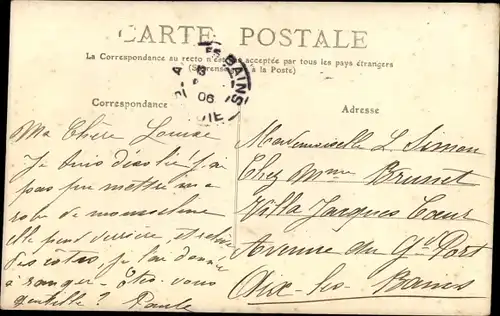 CARTE POSTALE
La Correspondance au recto n'est pas acceptée par tous les pays étrangers
(Se renseigner à la Poste)
BAINS
06
Correspondance
Adresse
Ma Chère Louise
Je suis désolée! j'ai
pas pu mettre ma
robe de mousseline
elle pend derrière et
des côtés, je l'ai donné
a ranger - Êtes-vous
gentille? Paule
Mademoiselle L. Simon
Chez Mme Brunet
Villa Jacques Coeur
Avenue du Gd Port
Aix-les-Bains